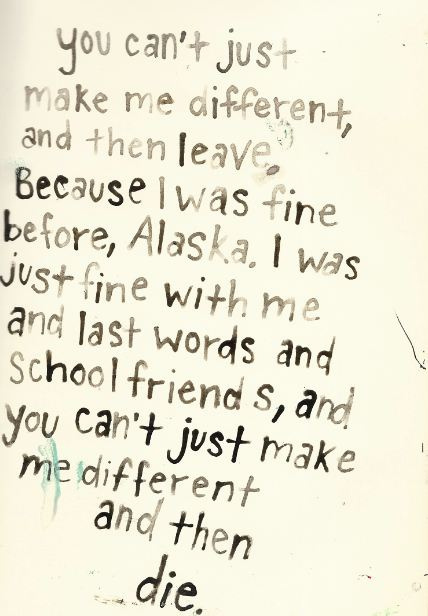 you can't just
make me different,
and then leave.
Because I was fine
before, Alaska. I was
just fine with me
and last words and
School friends, and
you can't just make
me different
and then
die.